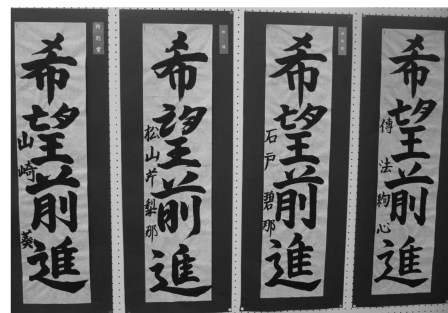 希望前進
山崎葵
希望前進
松山芹梨那
希望前進
石戸碧那
希望前進
傳法絢心